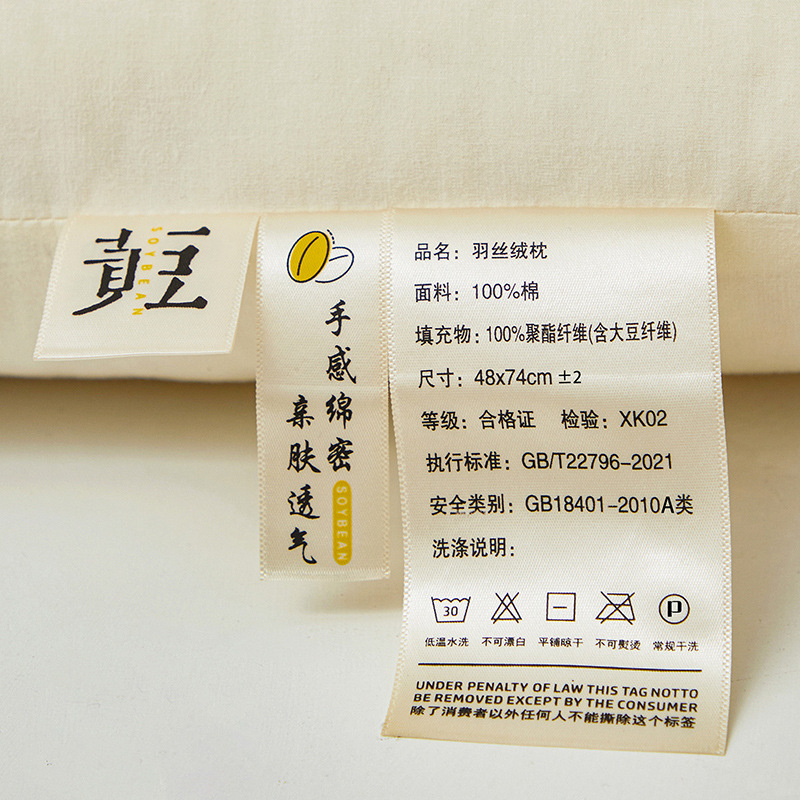 黄豆
SOYBEAN
手感绵密
亲肤透气
SOYBEAN
品名：羽丝绒枕
面料：100%棉
填充物:100%聚酯纤维(含大豆纤维)
尺寸：48x74cm ±2
等级：合格证 检验：XK02
执行标准：GB/T22796-2021
安全类别：GB18401-2010A类
洗涤说明：
30
P
低温水洗 不可漂白 平铺晾干 不可熨烫 常规干洗
UNDER PENALTY OF LAW THIS TAG NOTTO
BE REMOVED EXCEPT BY THE CONSUMER
除了消费者以外任何人不能撕除这个标签